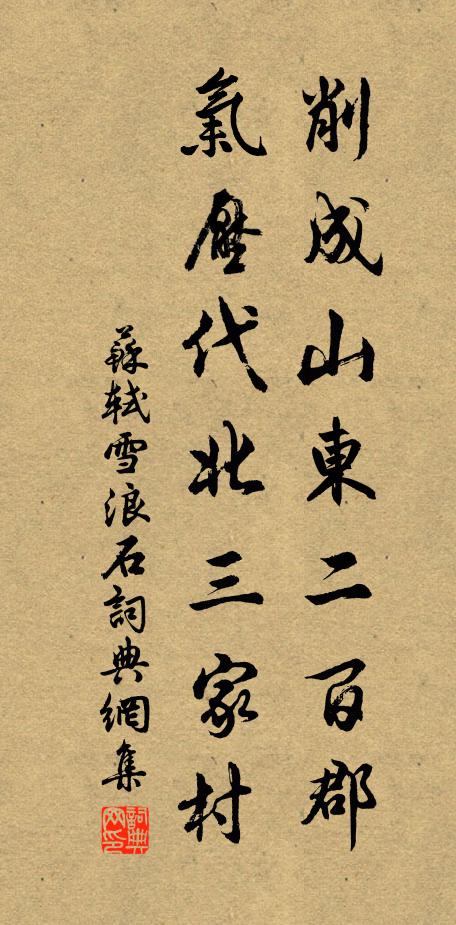 削成山東二百郡
氣壓代北三家村
蘇軾雪浪石詞典網集
詞典
网印